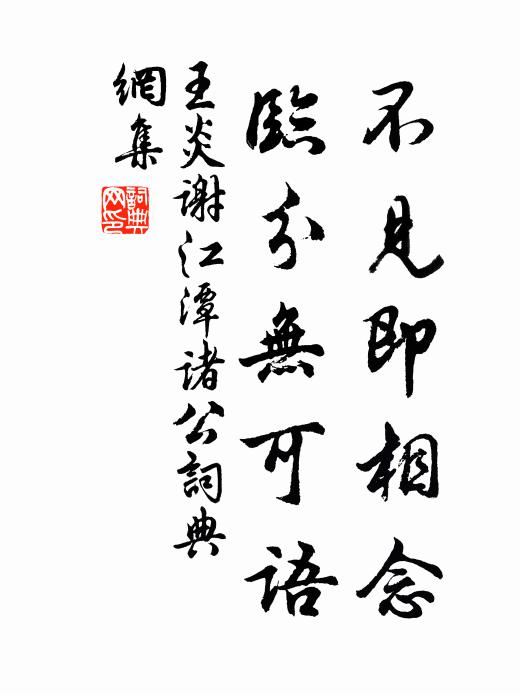 不見即相念
臨分無可語
王炎謝江潭諸公詞典
網集
詞典
网印